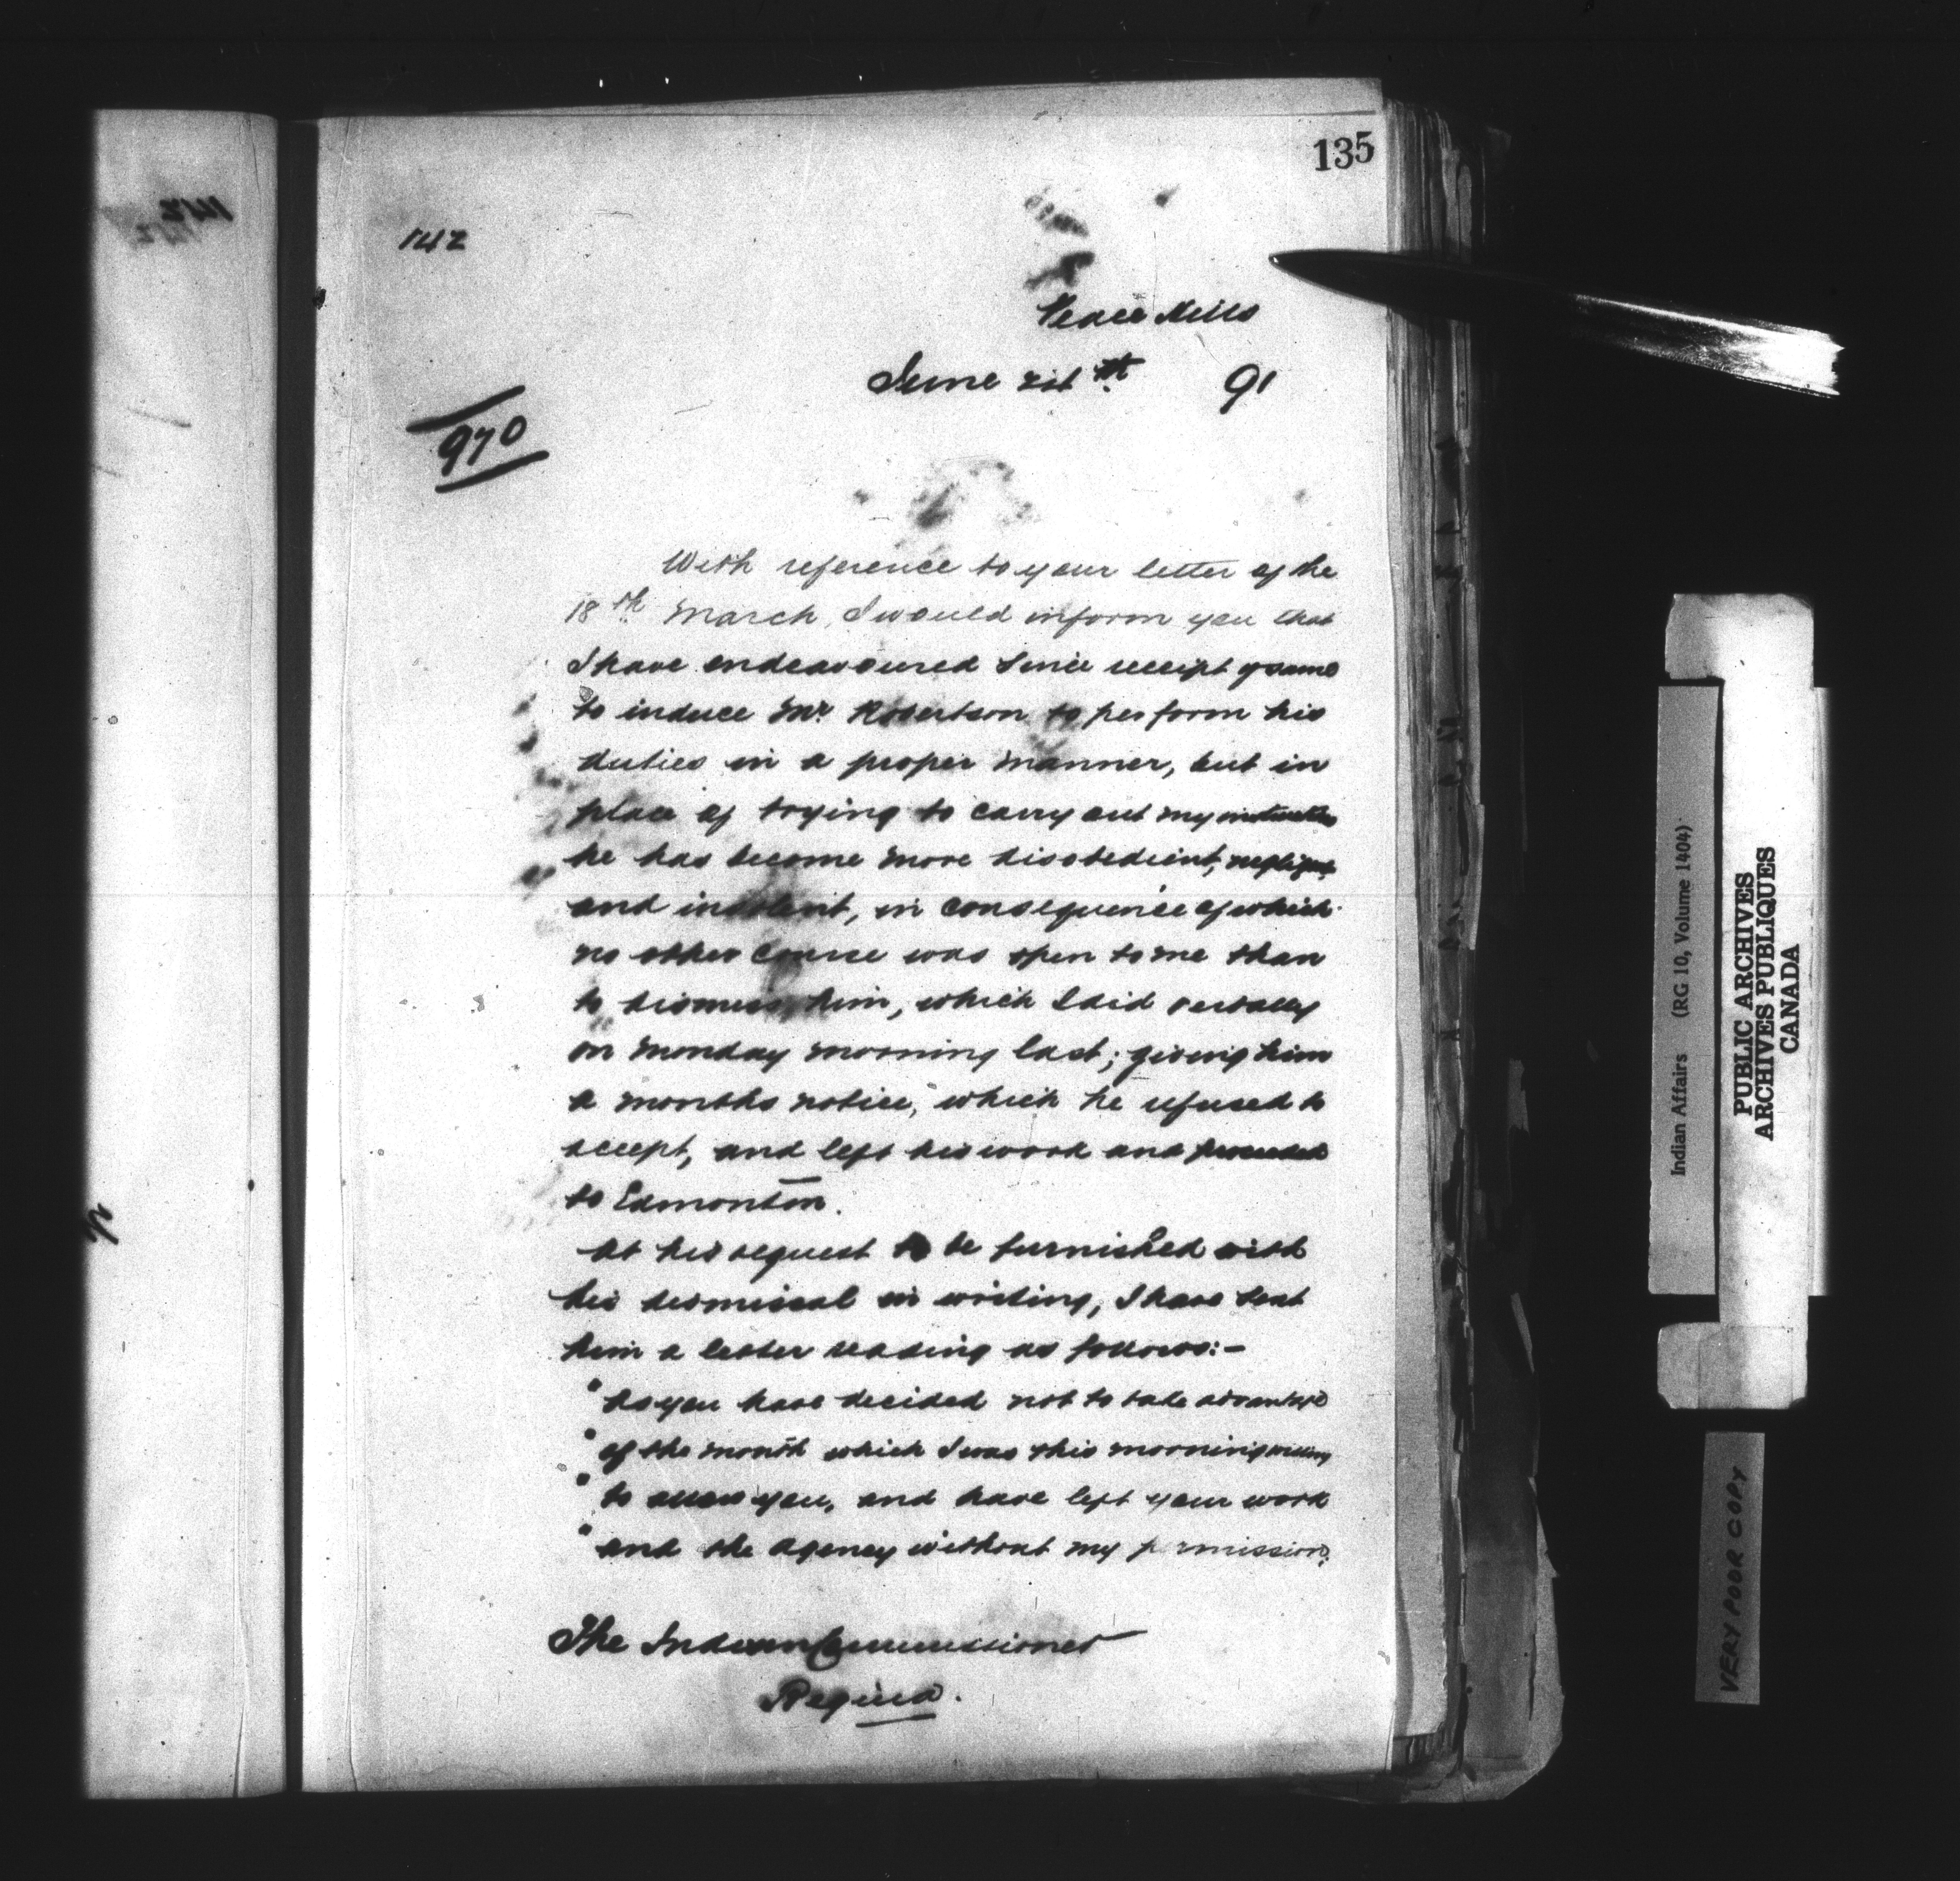 135
142
Peace Hills
June 21st th. 91
970
With reference to your letter of the
18th March, I would inform you that
I have endeavoured since receipt of same
to induce Mr. Robertson to perform his
duties in a proper manner, but in
place of trying to carry out my
he has become more disobedient,
and insolent, in consequence of which
no other course was open to me than
to dismiss him, which I did verbally
on Monday morning last; giving him
a months notice, which he refused to
accept, and left his work and proceeded
to Edmonton.
At his request to be furnished with
his dismissal in writing, I have sent
him a letter reading as follows:-
"As you have decided not to take advantage
"of the month which I was this morning willing
"to allow you, and have left your work
"and the Agency without my permission,
The Indian Commissioner
Regina.
Indian Affairs (RG 10, Volume 1404)
PUBLIC ARCHIVES
ARCHIVES PUBLIQUES
CANADA
VERY POOR COPY